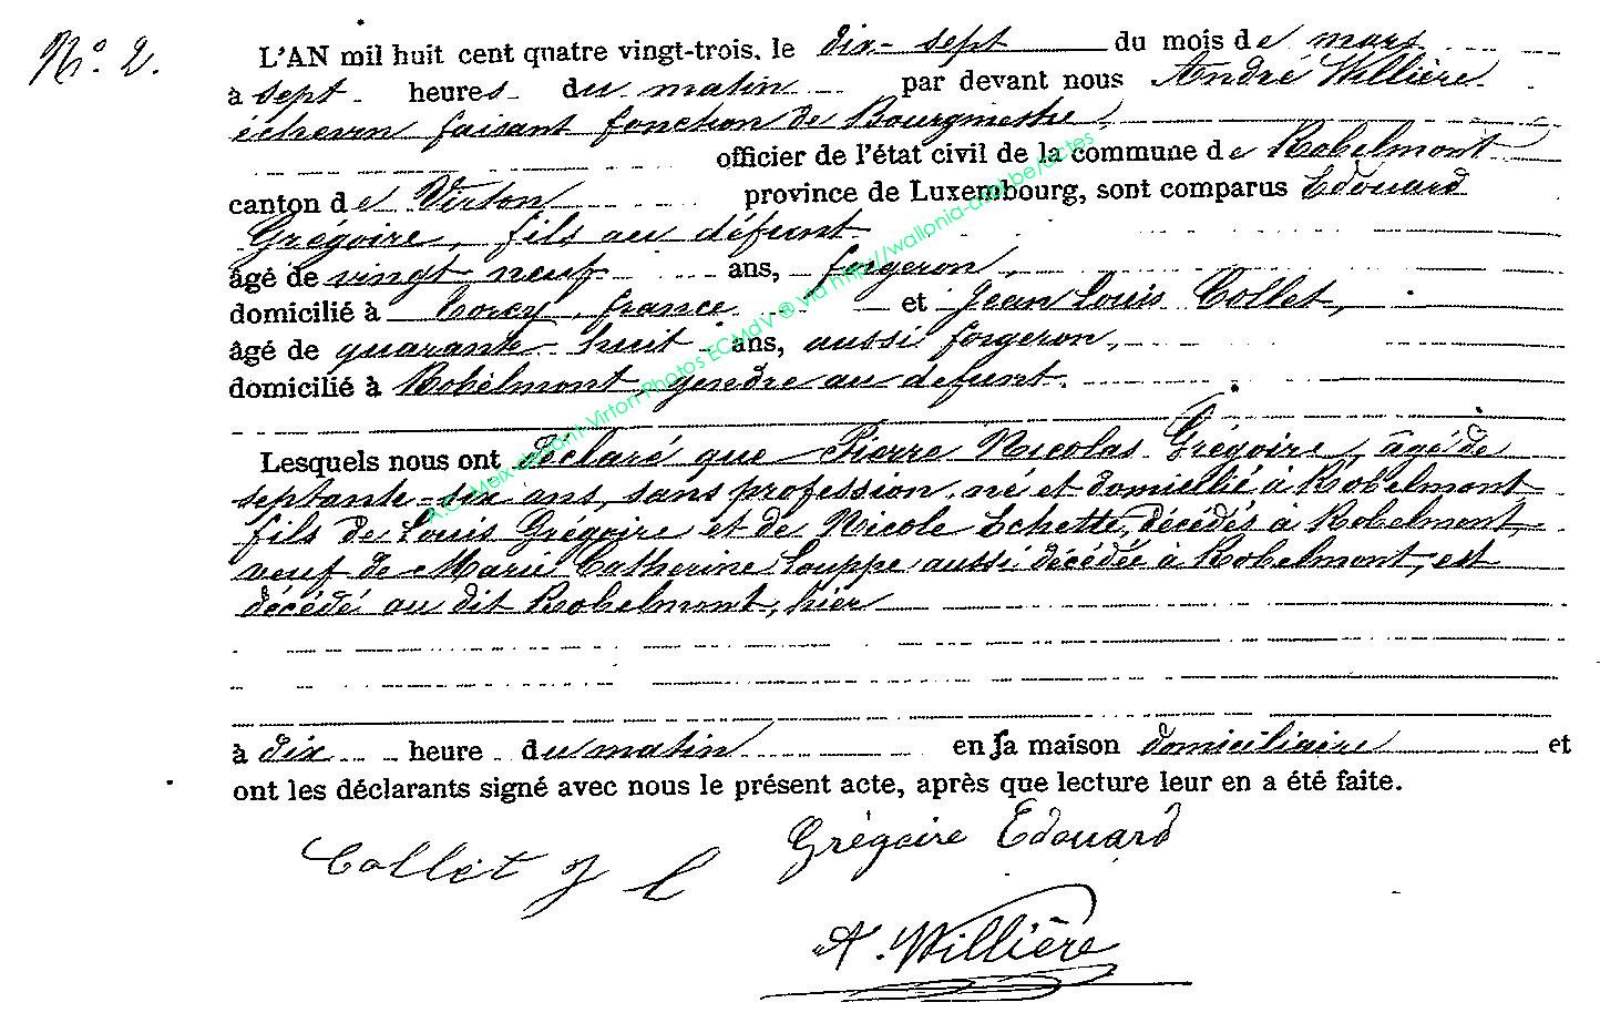 N.° 2.
L'AN mil huit cent quatre vingt-trois, le dix-sept du mois de mars
à sept heures du matin par devant nous André Willière
échevin faisant fonction de Bourgmestre,
officier de l'état civil de la commune de Robelmont
canton de Virton province de Luxembourg, sont comparus Edouard
Grégoire, fils au défunt
âgé de vingt neuf ans, forgeron,
domicilié à Torcy, france et Jean Louis Collet,
âgé de quarante-huit ans, aussi forgeron,
domicilié à Robelmont, gendre au défunt.
Lesquels nous ont déclaré que Pierre Nicolas Grégoire, âgé de
septante-six ans, sans profession, né et domicilié à Robelmont,
fils de Louis Grégoire et de Nicole Echette, décédés à Robelmont,
veuf de Marie Catherine Louppe aussi décédée à Robelmont, est
décédé au dit Robelmont, hier
à dix heure du matin en sa maison domiciliaire et
ont les déclarants signé avec nous le présent acte, après que lecture leur en a été faite.
Collet J L Grégoire Edouard
A. Willière
A.C. Meix-devant-Virton Photos ECMdV ® via http://wallonia-asbl.be/actes